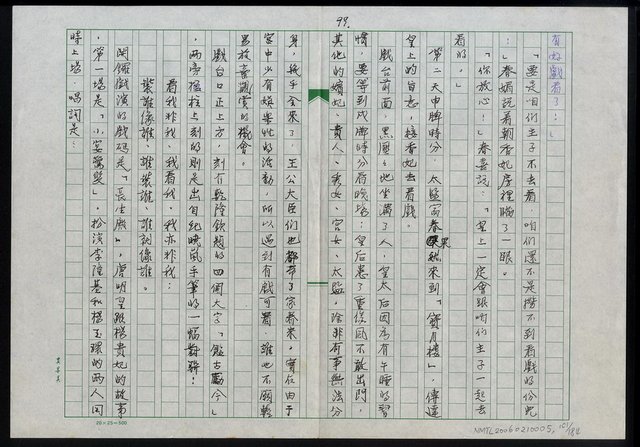 99.
有好戲看了!」
「要是咱們主子不去看,咱們還不是撈不到看戲的份兒
!」春娟說着朝香妃房裡瞄了一眼。
「你放心!」春喜說:「皇上一定會跟咱們主子一起去
看的。」
第二天申牌時分,太監富春果然來到「寶月樓」,傳達
皇上的旨意,接香妃去看戲。
戲台前面,黑壓壓地坐滿了人,皇太后因為有午睡的習
慣,要等到戌牌時分看晚場;皇后患了重傷風不敢出門,
其他的嬪妃、貴人、秀女、宮女、太監,除非有事無法分
身,幾乎全來了,王公大臣們也都帶了家眷來,實在由于
宮中少有娛樂性的活動,所以遇到有戲可看,誰也不願輕
易放棄觀賞的機會。
戲台口正上方,刻有乾隆欽題的四個大字「鑑古勵今」
,兩旁楹柱上刻的則是出自紀曉嵐手筆的一幅對聯:
看我非我,我看我,我亦非我;
裝誰像誰,誰裝誰,誰就像誰。
開鑼戲演的戲碼是「長生殿」,唐明皇跟楊貴妃的故事
,第一場是「小宴驚變」,扮演李隆基和楊玉環的兩人同
時上場,唱詞是:
20×25=500
NMTL20060210005, 101/184